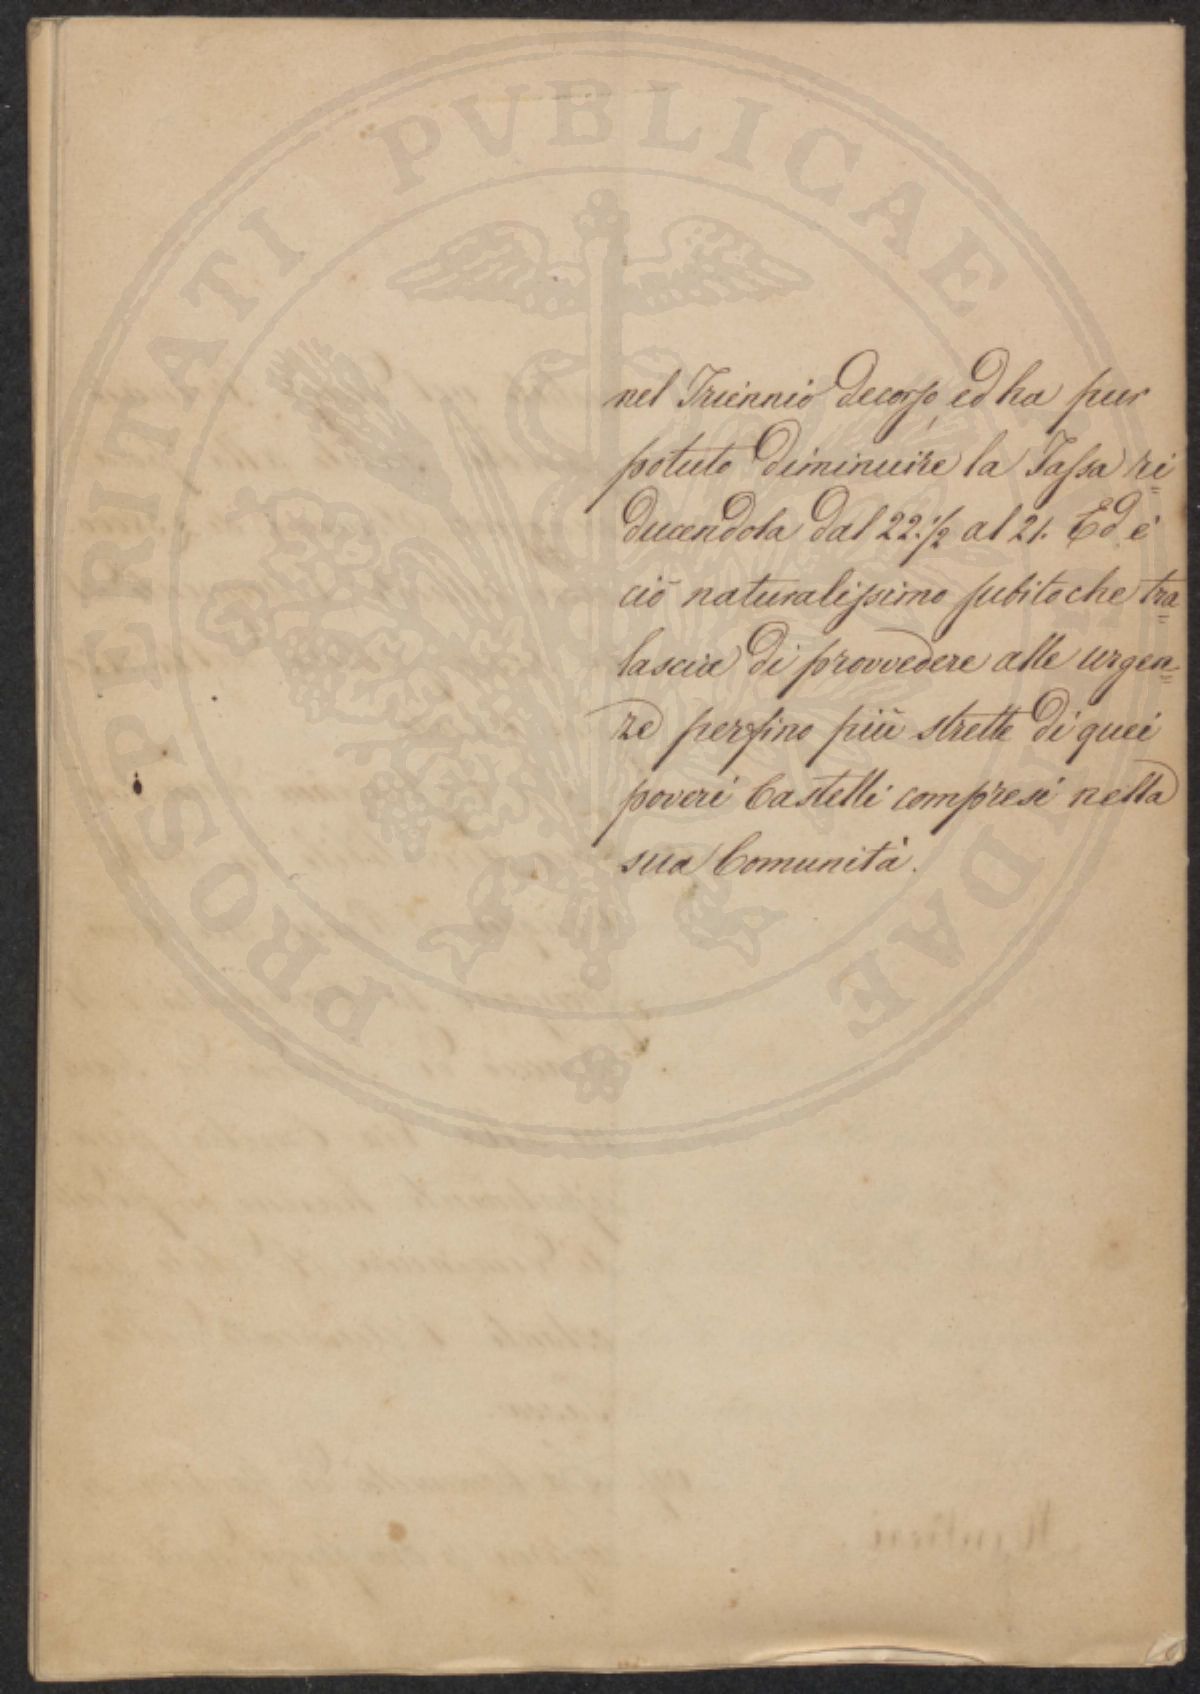 PROSPERITATI PVBLICAE
nel Triennio decorso, ed ha pur
potuto diminuire la Tassa ri=
ducendola dal 22.½ al 21. Ed è
ciò naturalissimo subitoche tra=
lascia di provvedere alle urgen=
ze persino più strette di quei
poveri Castelli compresi nella
sua Comunità.